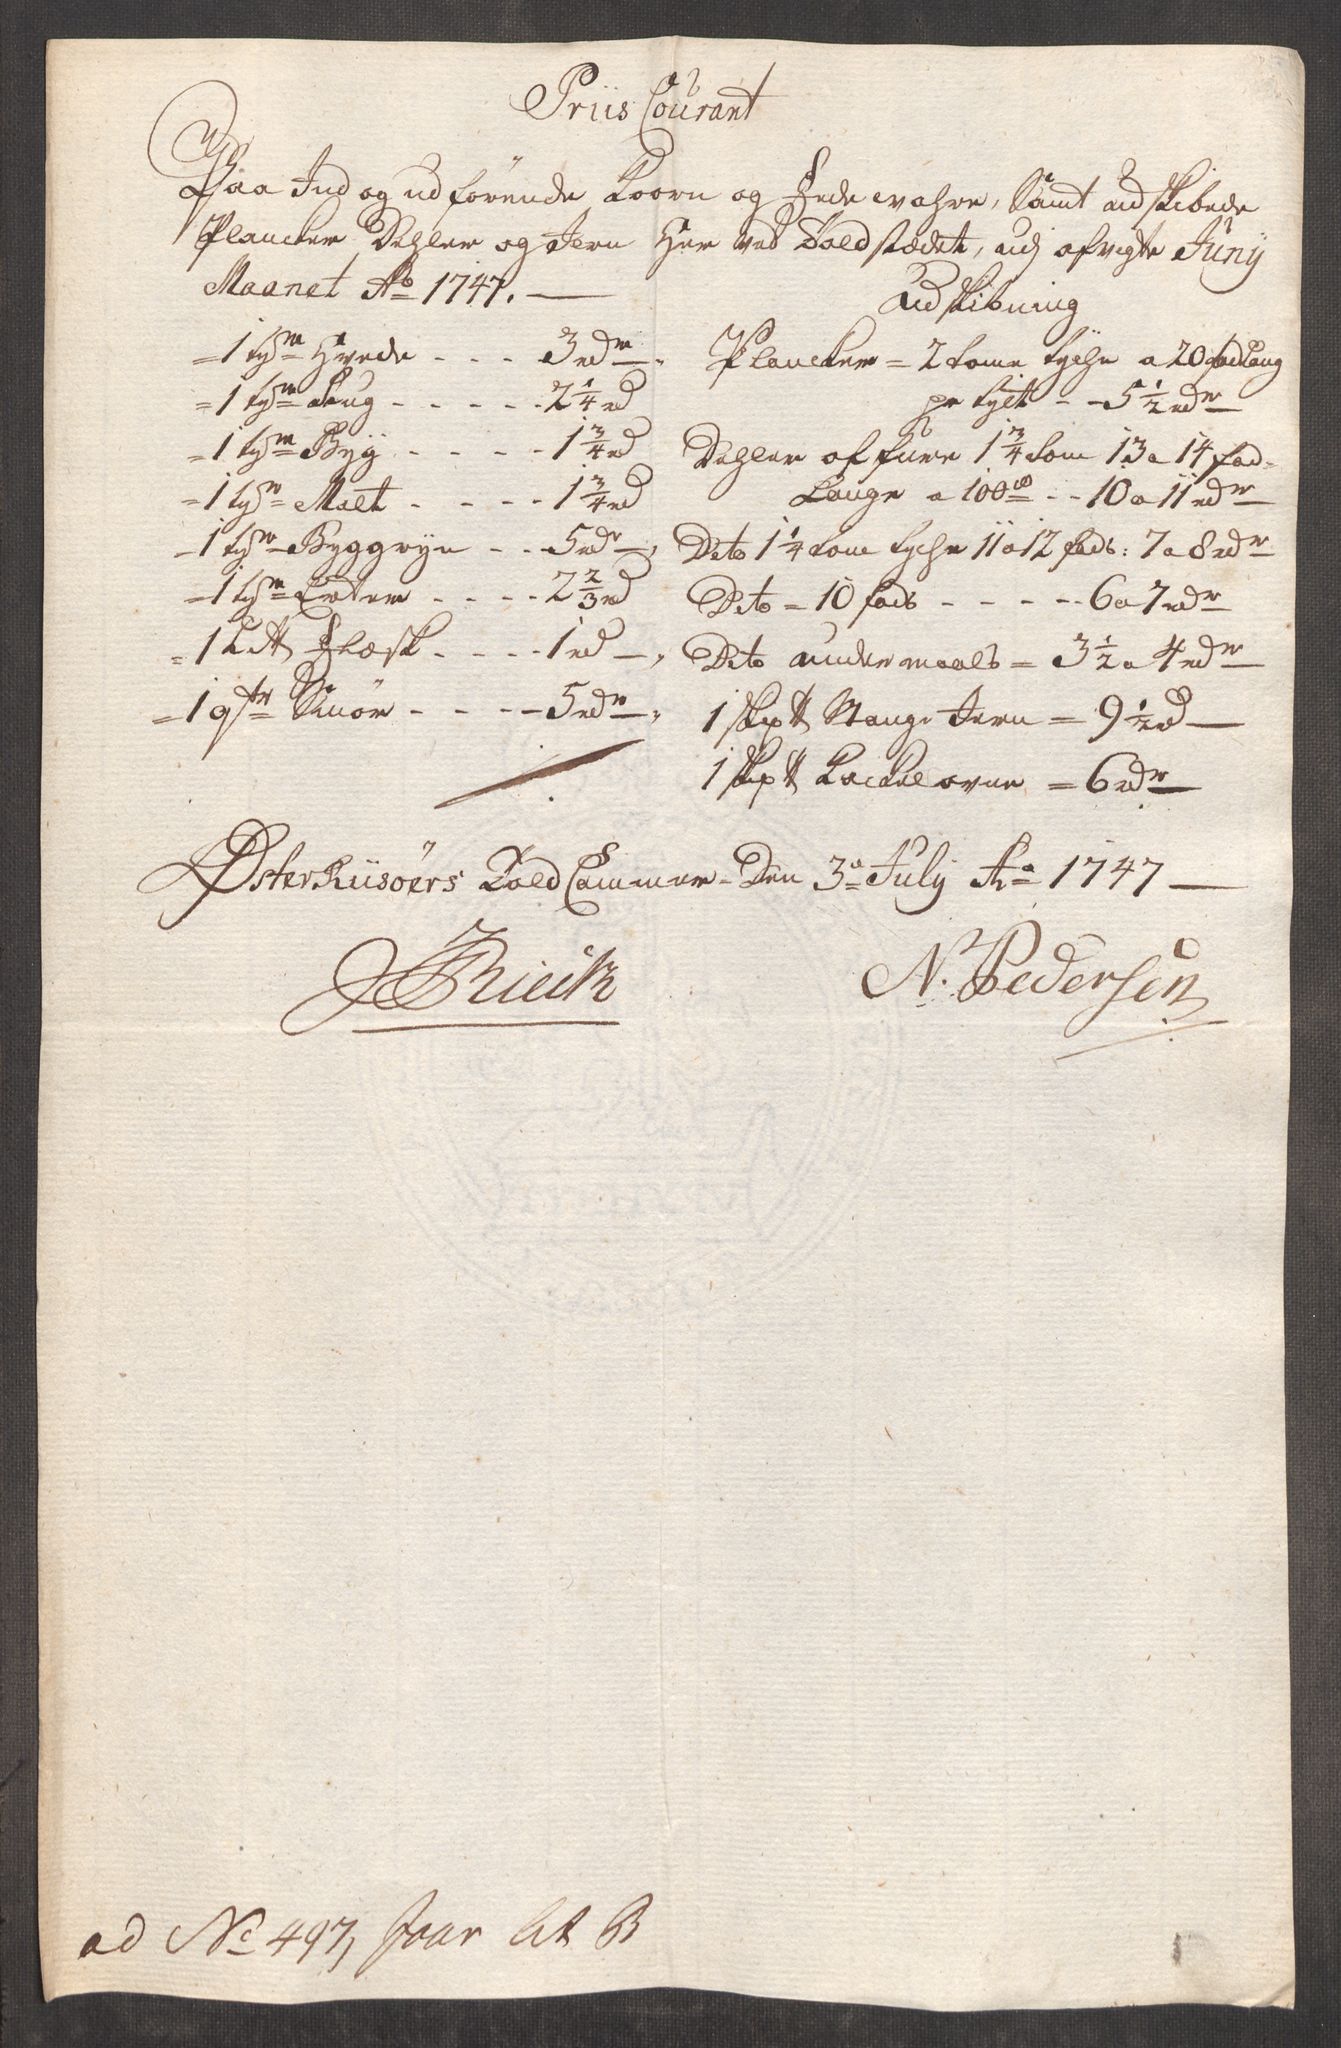 Priis Courant
Paa Ind og udførende Koorn og Fede wahre, Samt udskibede
Plancker Dehler og Jern Her ved Toldstædet, udj afvigte Junÿ
Maanet Aº 1747.
= 1 tÿn Hvede - - - 3 rdr
= 1 tÿn Rug - - - - - 2 1/4 rd
= 1 tÿn Byg - - - - - 1 3/4 rd
= 1 tÿn Malt - - - - 1 3/4 rd
= 1 tÿn Byggryn - - - 5 rdr
= 1 tÿn Erter - - - - 2 2/3 rd
= 1 L℔ Flæsk - - - - 1 rd
= 1 qtr Smør - - - - 5 rdr
Udskibning
Plancker = 2 tome tyche a 20 fodLang
pr tylt - - 5 1/2 rdr
Dehler af furre 1 3/4 tom 13 a 14 fod
Lange a 100de - - 10 a 11 rdr
Dito 1 1/4 tom tyche 11 a 12 fods: 7 a 8 rdr
Dito = 10 fods - - - - - 6 a 7 rdr
Dito undermaals = 3 1/2 a 4 rdr
1 Skp℔ Stange Jern = 9 1/2 rd
1 Skp℔ Kackelovne = 6 rdr
ØsterRiisöers Told Cammer - Den 3a July Aº 1747
N. Pedersen
ad No 497, Jour Lit B